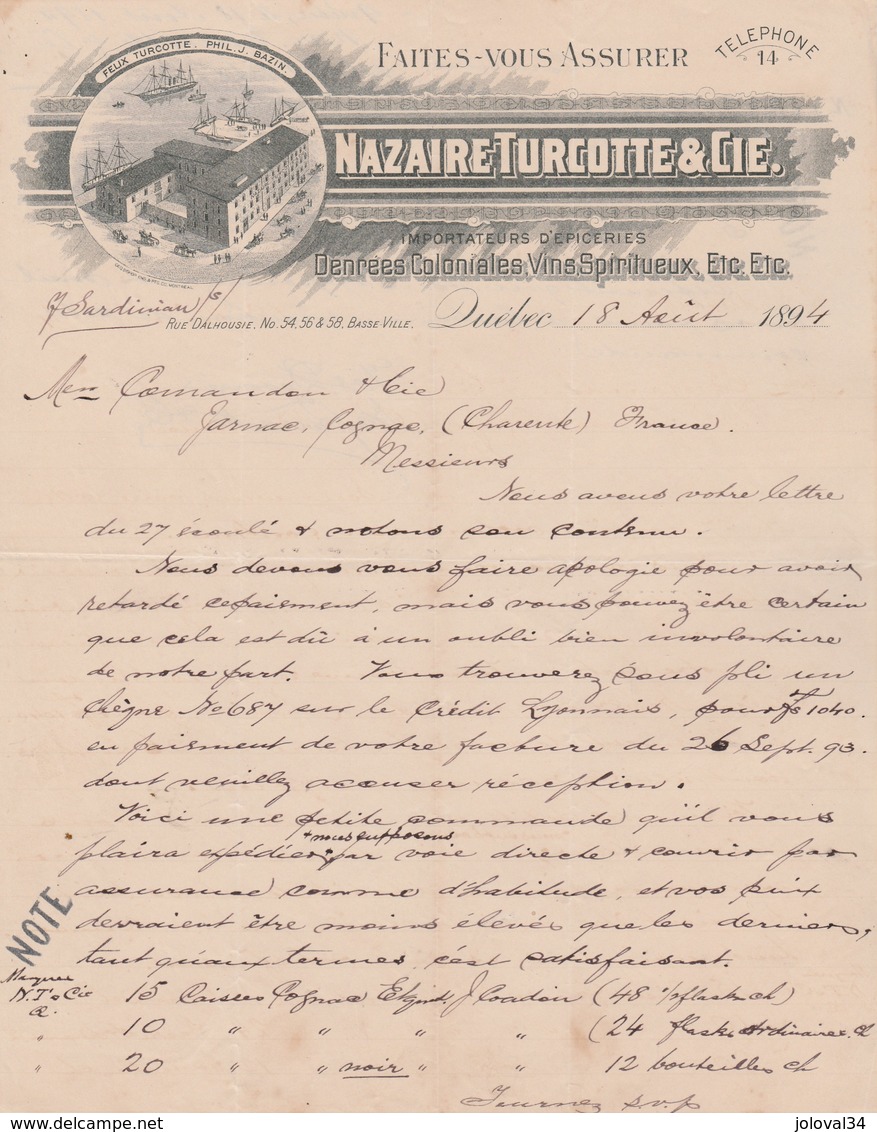 FAITES-VOUS ASSURER
TELEPHONE 14
FEUX TURCOTTE. PHIL. J. BAZIN.
NAZAIRE TURCOTTE & CIE.
IMPORTATEURS D'EPICERIES
Denrées Coloniales, Vins, Spiritueux, Etc. Etc.
S/S Sardinian
RUE DALHOUSIE, No. 54, 56 & 58, BASSE-VILLE.
Québec 18 Août 1894
Comandon & Cie
Jarnac, Cognac, (Charente) France.
Messieurs
Nous avons votre lettre
du 27 écoulé & notons son contenu.
Nous devons vous faire apologie pour avoir
retardé ce paiement, mais vous pouvez être certain
que cela est dû à un oubli bien involontaire
de notre part. Vous trouverez sous pli un
chèque No 687 sur le Crédit Lyonnais, pour fs 1040.
en paiment de votre facture du 26 Sept. 93.
dont veuillez accuser réception.
Voici une petite commande qu'il vous
& nous supposons
plaira expédier par voie directe & couvrir par
assurance comme d'habitude, et vos prix
devraient être moins élevés que les derniers,
tant qu'aux termes, c'est satisfaisant.
NOTE
N.T. & Cie
Q.
15 Caisses Cognac J Coadou (48 1/2 flasks ch)
" 10 " " " " (24 flasks ordinaires ch
" 20 " " noir " " 12 bouteilles ch
Tournez s.v.p
www.delcampe.net
joloval34